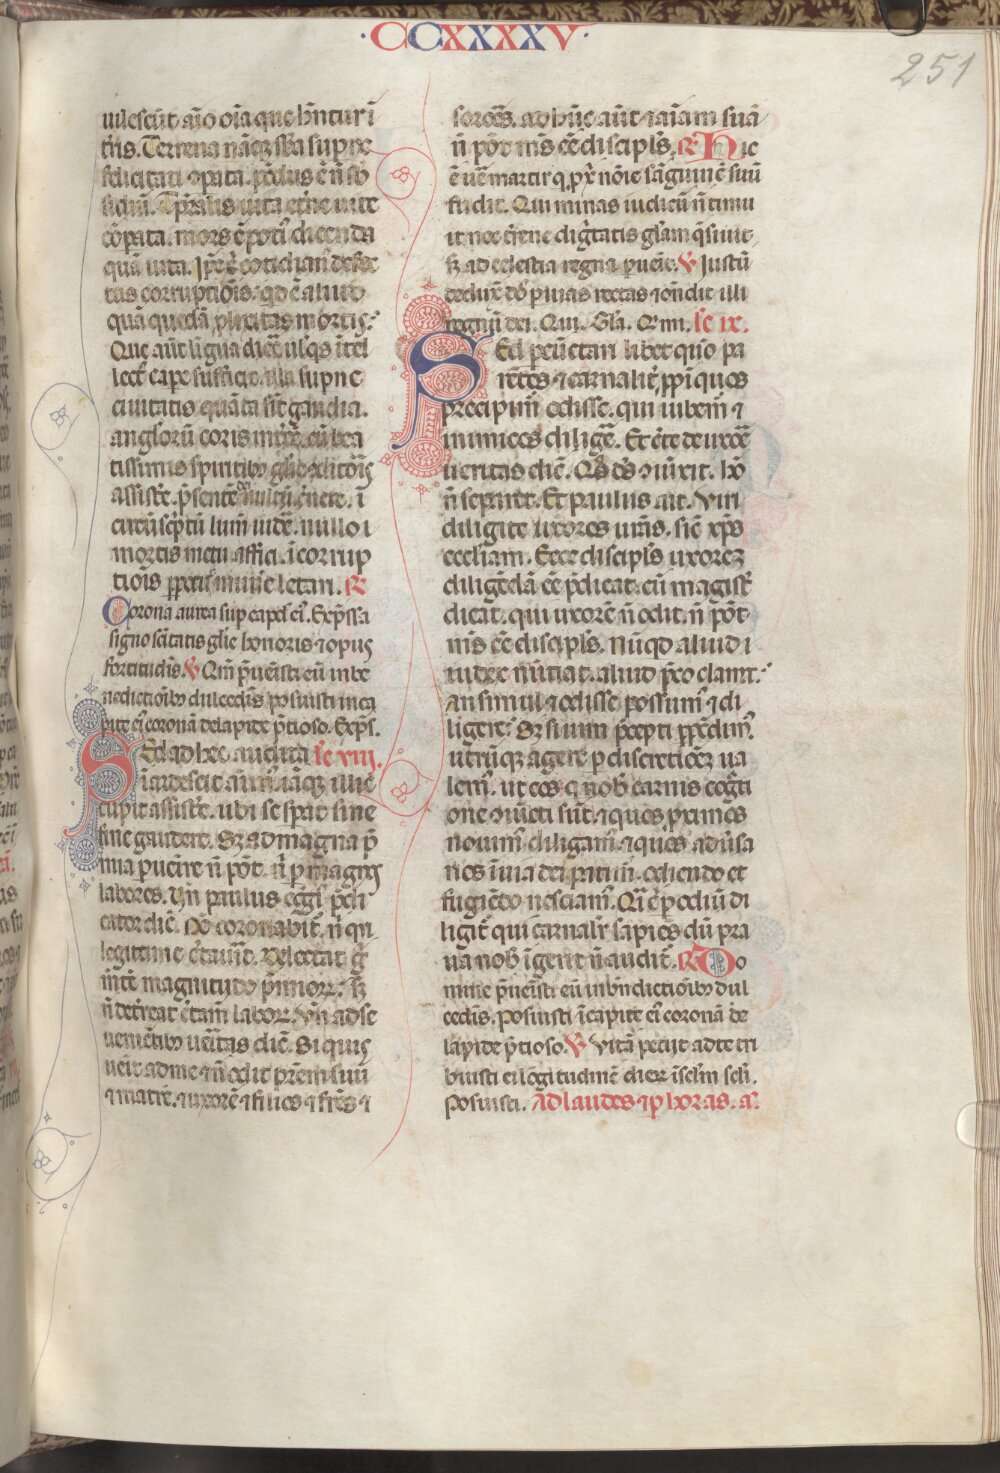 ·CCXXXXV·
251
uilescūt aīo oīa que hn̄tur ī
tr̄is. Terrena nāqꝫ sba supne
felicitati ꝯpata. pōdus ē ñ sb
sidiū. Tp̄ralis uita etn̄e uite
cōpata. mors ē potiꝰ dicenda
quā uita. Ipse ē cotidianꝰ defec
tus corruptiōis. qd ē aliud
quā quedā plixitas mortis?
Que aūt ligua dicē uł qs ītel
lectꝰ cape sufficit. illa supne
ciuitatis quāta sīt gaudia.
angloꝝ coris ītēe. cū bea
tissimis spiritibꝫ glie ꝯditoris
assistē. p̄sentē dei uultū c̄nere. ī
circūscptū lum̄ uidē. nullo
mortis metu affici. īcorrup
tiōis ppetue mun̄e letari. ℟
Corona aurea sup caput eiꝰ. Exp̄ssa
signo sc̄itatis glie honoris ⁊ opus
fortitudis. ℣ Qm̄ p̄uenisti eū in be
nedictioībꝫ dulcedis posuisti in ca
pite eiꝰ coronā de lapide p̄tioso. Exp̄s.
Sed ad hec audita łc xiij.
īardescit aīmꝰ. iāqꝫ illic
cupit assistē. ubi se sperat sine
fine gaudere. Sꝫ ad magna p̄
mia puenire ñ pōt. n̄ p magnos
labores. Uñ paulus egḡiꝰ p̄di
cator dic̄. Nō coronabit̄. n̄ qui
legittime c̄tauit̄. Delectat ḡ
mētē magnitudo p̄mioꝝ: sꝫ
ñ detreat c̄tam̄ laboꝝ. Uñ ad se
ueniētibꝫ ueritas dic̄. Si quis
ueit ad me ⁊ ñ odit pr̄em suū
⁊ matrē. ⁊ uxorē ⁊ filios ⁊ fr̄es ⁊
sorores. adhuc aūt ⁊ aīam suā
ñ pōt m̄s ēe discipls. ℟ Hic
ē ue martir q p xp̄i noīe sāguinē suū
fudit. Qui minas iudicū ñ timu
it nec tr̄ene digītatis glam qsiuit
sꝫ ad celestia regna puēit. ℣ Iustū
deduxit dn̄s p uias rectas ⁊ ōndit illi
regnū dei. Qui. Gla. Q mi. łc ix.
Sed pcūctari libet quō pa
rētes ⁊ carnalit ppiquos
precipim̄ odisse. qui iubem̄ ⁊
inimicos diligē. Et c̄te de uxore
ueritas dic̄. Qd dꝰs ꝯiūxit. hō
ñ sepret. Et paulus ait. Uiri
diligite uxores ur̄as. sic̄ xp̄s
eccliam. Ecce discipls uxorez
diligēdā ēe p̄dicat. cū magistꝰ
dicat. qui uxorē ñ odit. ñ pōt
m̄s ēe discipls. nūqd aliud i
udex nūtiat. aliud p̄co clamat?
An simul ⁊ odisse possumꝰ ⁊ di
ligere? Sꝫ si uim p̄cepti ppēdimꝰ.
utrūqꝫ agere p discretiōeꝫ ua
lemꝰ. ut eos q nob carnis cogti
one ꝯiūcti sūt. ⁊ quos proximos
nouimꝰ diligamꝰ. ⁊ quos aduersa
rios ī uia dei patimur. odiendo et
fugiēdo nesciamꝰ. Qī ē p odiū di
ligit̄ qui carnalit sapiēs dū pra
ua nob īgerit ñ audit̄. ℟ Do
mine p̄uenisti eū in bn̄dictioībꝫ dul
cedis. Posuisti ī capite eiꝰ coronā de
lapide p̄tioso. ℣ Uitā petijt a te tri
buisti ei lōgitudinē dieꝝ ī sclm scli.
Posuisti. Ad laudes ⁊ p horas. a.